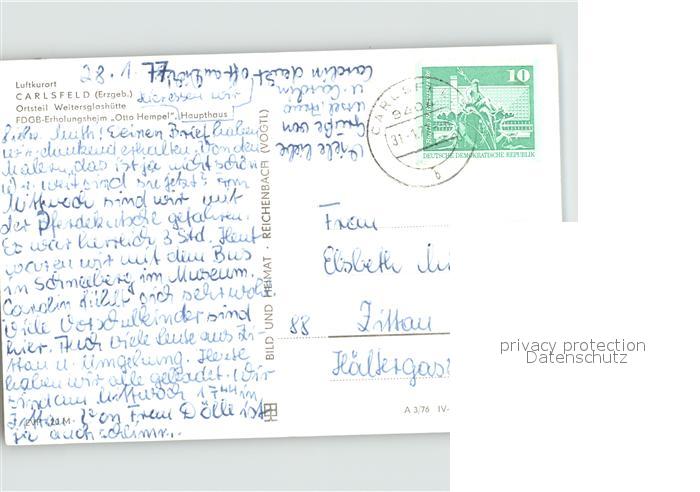 28.1.77
Luftkurort
CARLSFELD (Erzgeb.)
Ortsteil Weitersglashütte
FDGB-Erholungsheim „Otto Hempel", Haupthaus
Liebe Muth! Deinen Brief haben
wir dankend erhalten. Von den
Malern, das ist ja nicht schön
wie weit sind sie jetzt? Am
Mittwoch sind wir mit
der Pferdekutsche gefahren.
Es war herrlich 3 Std. Heut
waren wir mit dem Bus
in Schneeberg im Museum.
Carolin fühlt sich sehr wohl
Viele Vorschulkinder sind
hier. Auch viele Leute aus Zi-
ttau u. Umgebung. Heute
haben wir alle gebadet. Wir
sind am Mittwoch 17 44 in
Zittau. Von Frau Dölle ist
ja auch schlimm.
EVP 0,20 M
Viele liebe
Grüße von
u. Carolin
BILD UND HEIMAT · REICHENBACH (VOGTL)
A 3/76 IV-
CARLSFELD
9406
31.-1.77
b
10
DEUTSCHE DEMOKRATISCHE REPUBLIK
Frau
Elsbeth
88 Zittau
Hältergas
privacy protection
Datenschutz